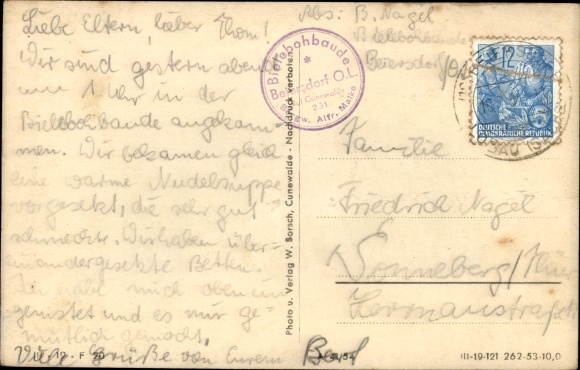 Liebe Eltern, lieber Thom!
Wir sind gestern abend
um 1 Uhr in der
Bielebohbaude angekom-
men. Wir bekamen gleich
eine warme Nudelsuppe
vorgesetzt, die sehr gut
schmeckte. Wir haben über-
einandergesetzte Betten.
Ich habe mich oben ein
genistet und es mir ge-
mütlich gemacht.
Viele Grüße von Eurem Bernd
IV-12-F 20
Photo u. Verlag W. Borsch, Cunewalde - Nachdruck verboten
Bielebohbaude
*
Beiersdorf O.L.
Cunewalde
231
Bes. Alfr. Matke
Abs: B. Nagel
Bielebohbaude
Beiersdorf/OL
12
DEUTSCHE
DEMOKRATISCHE REPUBLIK
Familie
Friedrich Nagel
Sonneberg/Thür
Hermannstraße
III-19-121 262-53-10,0